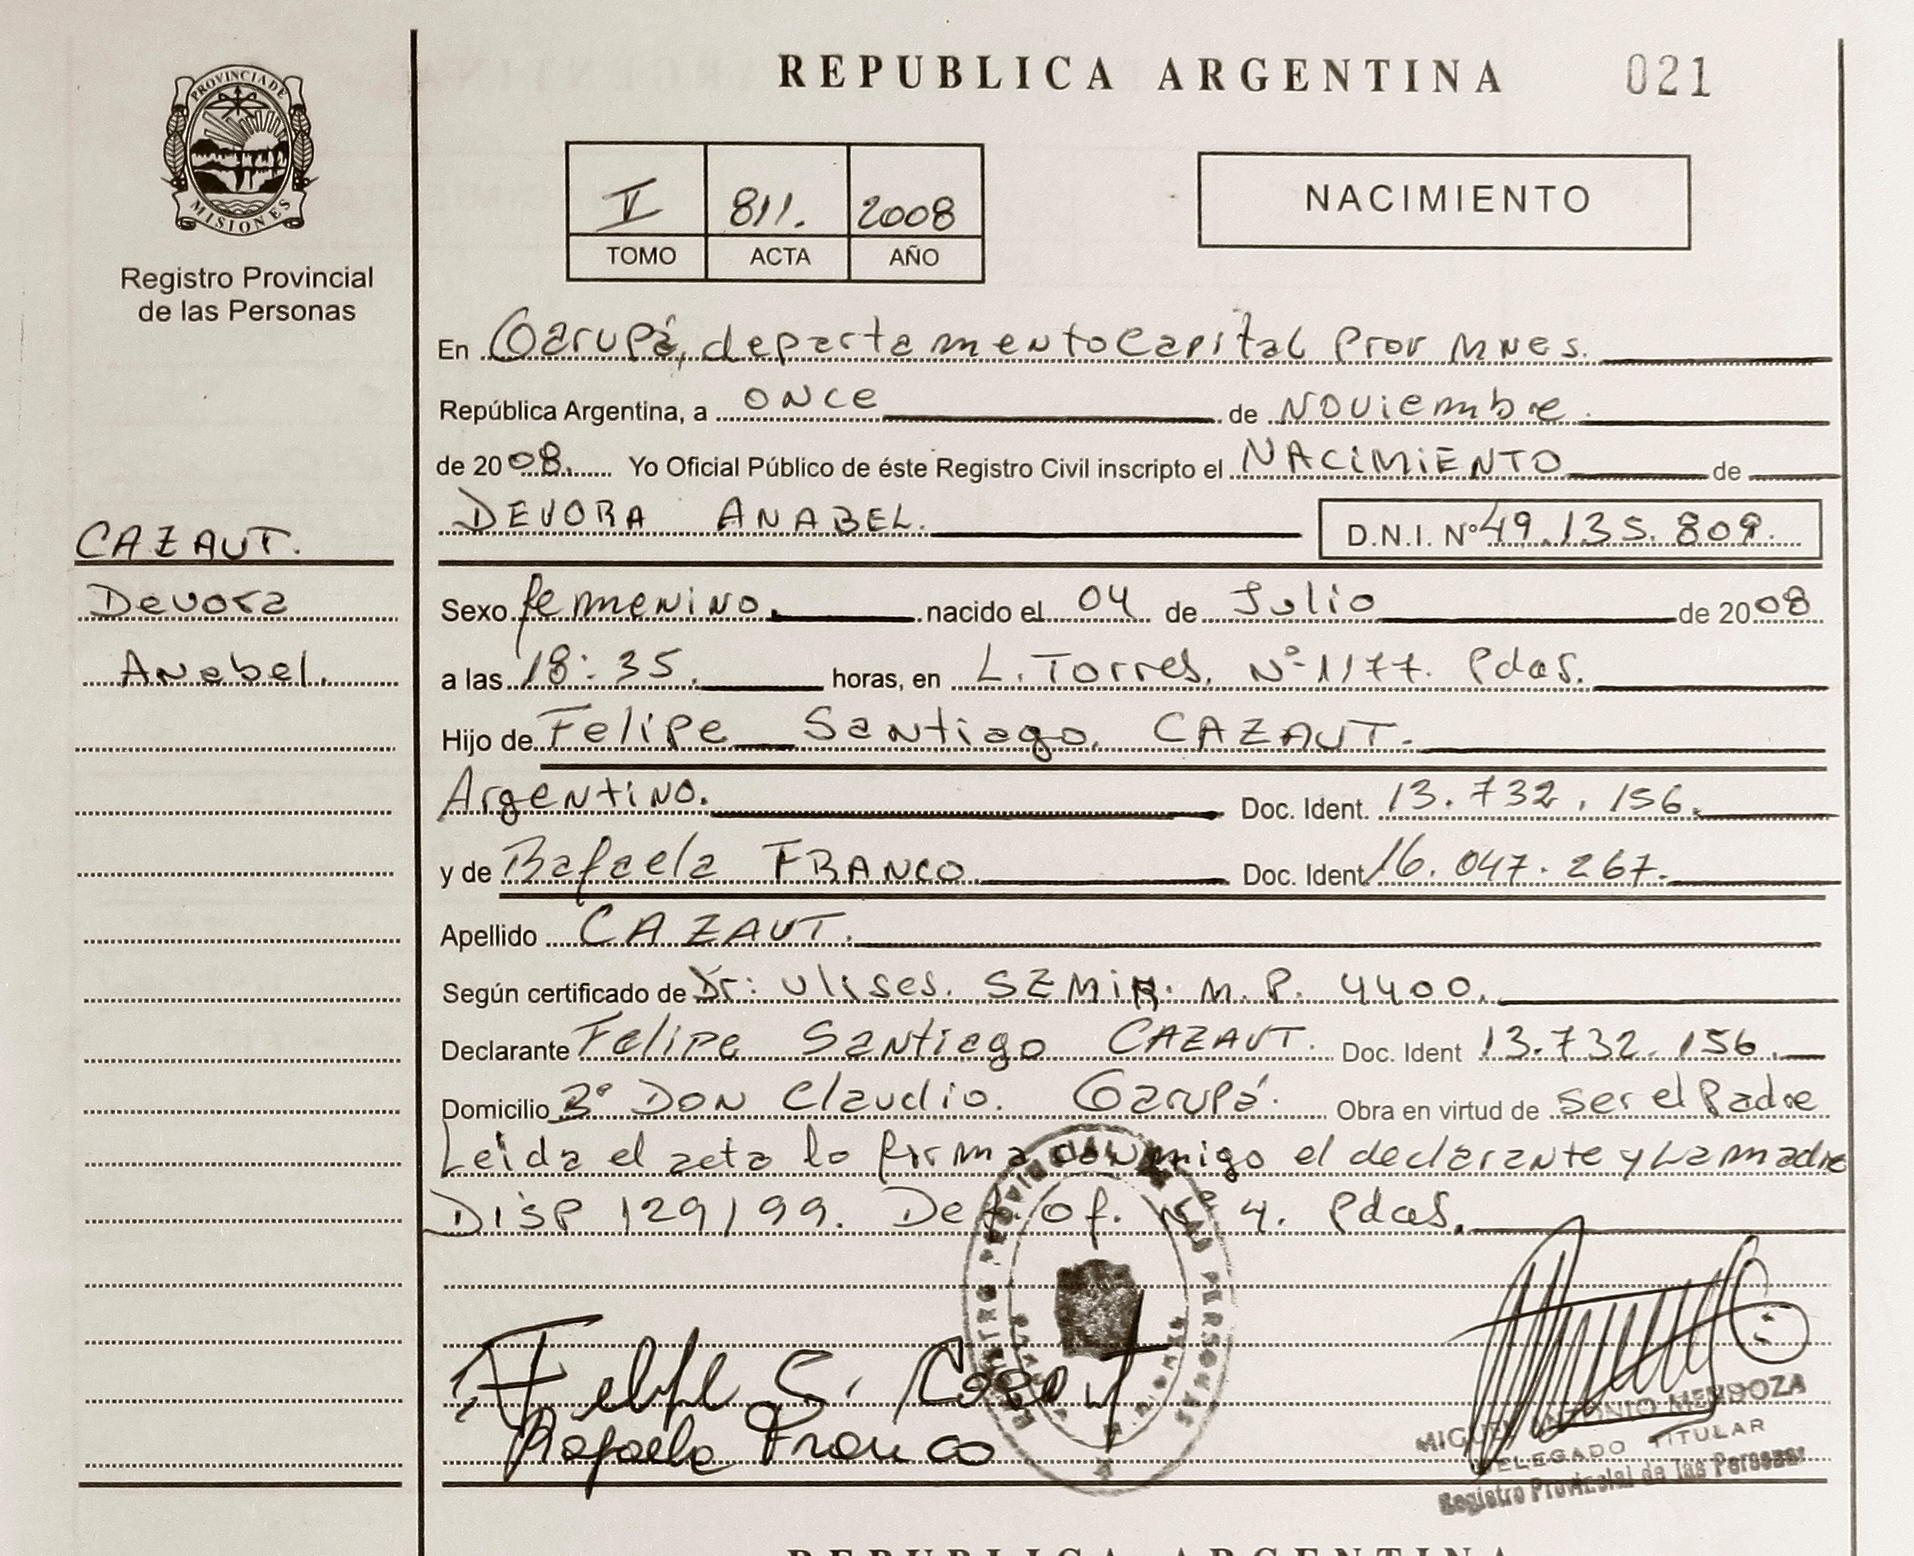 REPUBLICA ARGENTINA 021
PROVINCIA DE
MISIONES
Registro Provincial
de las Personas
811. 2008
TOMO ACTA AÑO
NACIMIENTO
En Garupá, departamento Capital Prov Mnes.
República Argentina, a once de Noviembre.
de 2008. Yo Oficial Público de éste Registro Civil inscripto el NACIMIENTO de
DEVORA ANABEL. D.N.I. Nº 49.135.809.
CAZAUT.
Devora
Anabel.
Sexo femenino. nacido el 04 de Julio de 2008
a las 18:35. horas, en L. Torres. Nº 1177. Pdas.
Hijo de Felipe Santiago. CAZAUT.
Argentino. Doc. Ident. 13.732.156.
y de Rafaela FRANCO Doc. Ident 16.047.267.
Apellido CAZAUT.
Según certificado de Dr: Ulises. SZMIR. M.P. 4400.
Declarante Felipe Santiago CAZAUT. Doc. Ident 13.732.156.
Domicilio Bº DON Claudio. Garupá. Obra en virtud de ser el Padre
Leida el acta lo firma conmigo el declarante y La madre
DISP 129/99. Def. of. Nº 4. Pdas.
REGISTRO PROVINCIAL DE LAS PERSONAS
Felipe S. Cazaut
Rafaela Franco
MIGUEL ANTONIO MENDOZA
DELEGADO TITULAR
Registro Provincial de las Personas
REPUBLICA ARGENTINA